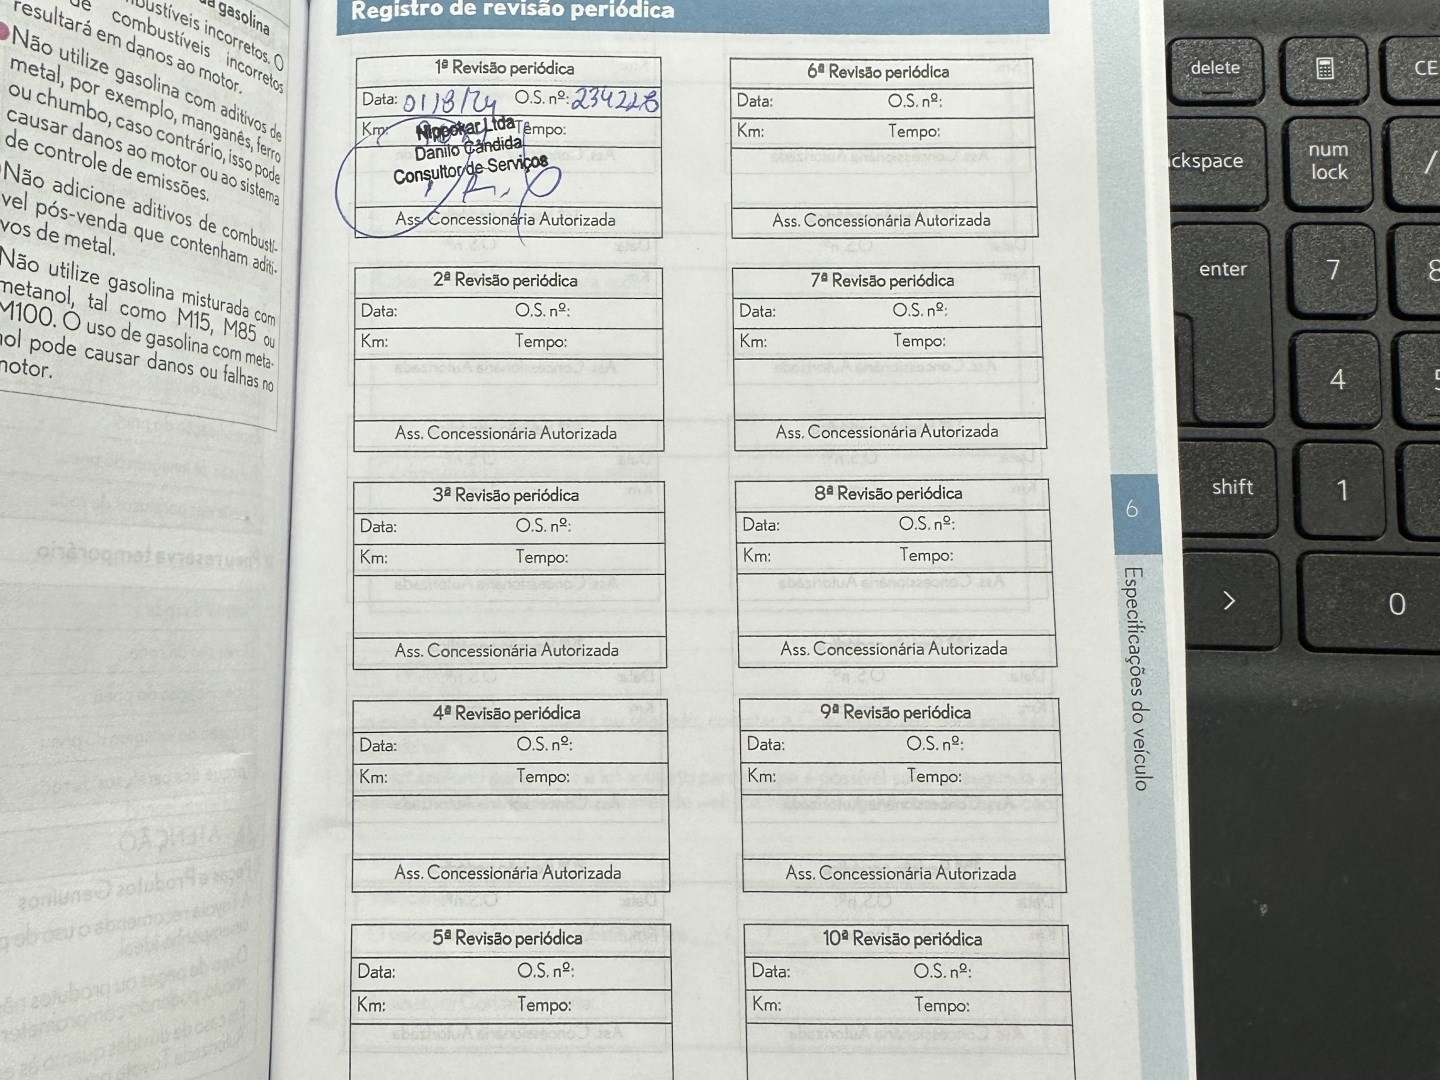 da gasolina
combustíveis incorretos. O
de combustíveis incorretos
resultará em danos ao motor.
Não utilize gasolina com aditivos de
metal, por exemplo, manganês, ferro
ou chumbo, caso contrário, isso pode
causar danos ao motor ou ao sistema
de controle de emissões.
Não adicione aditivos de combustí-
vel pós-venda que contenham aditi-
vos de metal.
Não utilize gasolina misturada com
metanol, tal como M15, M85 ou
M100. O uso de gasolina com meta-
nol pode causar danos ou falhas no
motor.
Registro de revisão periódica
1ª Revisão periódica
Data: 01/8/24 O.S. nº: 234228
Km: Tempo:
Nippokar Ltda
Danilo Cândida
Consultor de Serviços
Ass. Concessionária Autorizada
2ª Revisão periódica
Data: O.S. nº:
Km: Tempo:
Ass. Concessionária Autorizada
3ª Revisão periódica
Data: O.S. nº:
Km: Tempo:
Ass. Concessionária Autorizada
4ª Revisão periódica
Data: O.S. nº:
Km: Tempo:
Ass. Concessionária Autorizada
5ª Revisão periódica
Data: O.S. nº:
Km: Tempo:
6ª Revisão periódica
Data: O.S. nº:
Km: Tempo:
Ass. Concessionária Autorizada
7ª Revisão periódica
Data: O.S. nº:
Km: Tempo:
Ass. Concessionária Autorizada
8ª Revisão periódica
Data: O.S. nº:
Km: Tempo:
Ass. Concessionária Autorizada
9ª Revisão periódica
Data: O.S. nº:
Km: Tempo:
Ass. Concessionária Autorizada
10ª Revisão periódica
Data: O.S. nº:
Km: Tempo:
6
Especificações do veículo
delete
CE
ckspace
num
lock
/
enter
7
8
4
5
shift
1
>
0